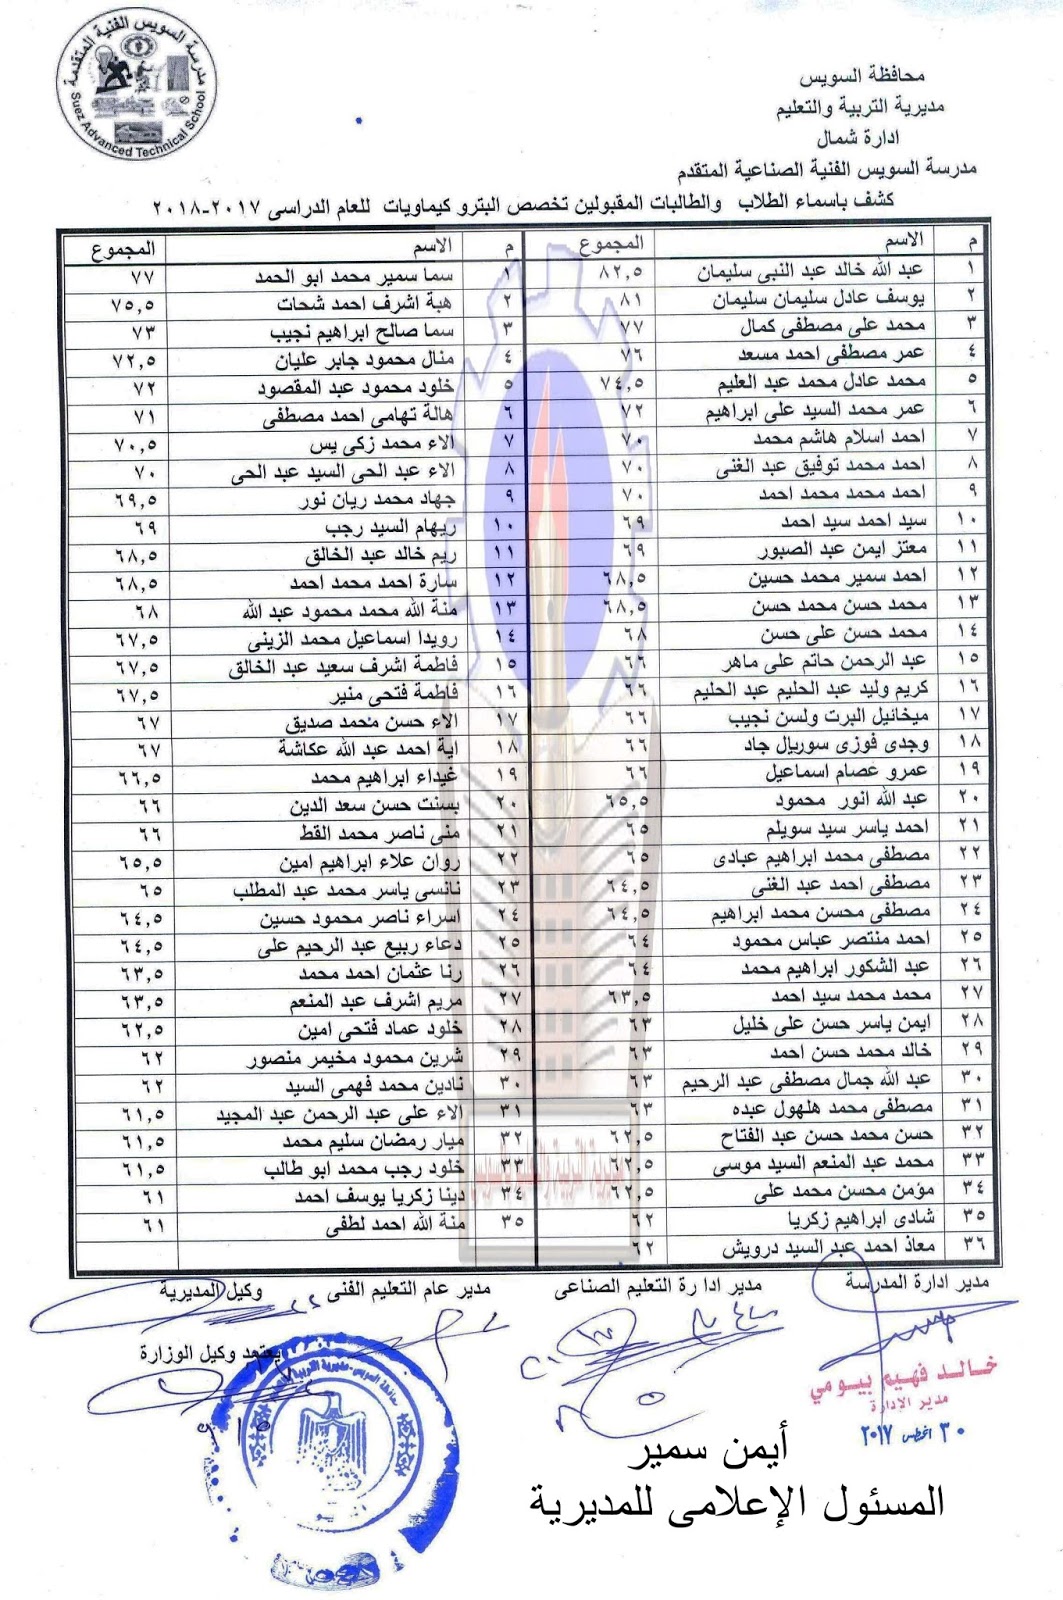 مدرسة السويس الفنية المتقدمة
Suez Advanced Technical School
محافظة السويس
مديرية التربية والتعليم
ادارة شمال
مدرسة السويس الفنية الصناعية المتقدم
كشف باسماء الطلاب والطالبات المقبولين تخصص البترو كيماويات للعام الدراسى ٢٠١٧-٢٠١٨
م الاسم المجموع م الاسم المجموع
١ عبد الله خالد عبد النبى سليمان ٨٢,٥ ١ سما سمير محمد ابو الحمد ٧٧
٢ يوسف عادل سليمان سليمان ٨١ ٢ هبة اشرف احمد شحات ٧٥,٥
٣ محمد على مصطفى كمال ٧٧ ٣ سما صالح ابراهيم نجيب ٧٣
٤ عمر مصطفى احمد مسعد ٧٦ ٤ منال محمود جابر عليان ٧٢,٥
٥ محمد عادل محمد عبد العليم ٧٤,٥ ٥ خلود محمود عبد المقصود ٧٢
٦ عمر محمد السيد على ابراهيم ٧٢ ٦ هالة تهامى احمد مصطفى ٧١
٧ احمد اسلام هاشم محمد ٧٠ ٧ الاء محمد زكى يس ٧٠,٥
٨ احمد محمد توفيق عبد الغنى ٧٠ ٨ الاء عبد الحى السيد عبد الحى ٧٠
٩ احمد محمد محمد احمد ٧٠ ٩ جهاد محمد ريان نور ٦٩,٥
١٠ سيد احمد سيد احمد ٦٩ ١٠ ريهام السيد رجب ٦٩
١١ معتز ايمن عبد الصبور ٦٩ ١١ ريم خالد عبد الخالق ٦٨,٥
١٢ احمد سمير محمد حسين ٦٨,٥ ١٢ سارة احمد محمد احمد ٦٨,٥
١٣ محمد حسن محمد حسن ٦٨,٥ ١٣ منة الله محمد محمود عبد الله ٦٨
١٤ محمد حسن على حسن ٦٨ ١٤ رويدا اسماعيل محمد الزينى ٦٧,٥
١٥ عبد الرحمن حاتم على ماهر ٦٦ ١٥ فاطمة اشرف سعيد عبد الخالق ٦٧,٥
١٦ كريم وليد عبد الحليم عبد الحليم ٦٦ ١٦ فاطمة فتحى منير ٦٧,٥
١٧ ميخائيل البرت ولسن نجيب ٦٦ ١٧ الاء حسن محمد صديق ٦٧
١٨ وجدى فوزى سوريال جاد ٦٦ ١٨ اية احمد عبد الله عكاشة ٦٧
١٩ عمرو عصام اسماعيل ٦٦ ١٩ غيداء ابراهيم محمد ٦٦,٥
٢٠ عبد الله انور محمود ٦٥,٥ ٢٠ بسنت حسن سعد الدين ٦٦
٢١ احمد ياسر سيد سويلم ٦٥ ٢١ منى ناصر محمد القط ٦٦
٢٢ مصطفى محمد ابراهيم عبادى ٦٥ ٢٢ روان علاء ابراهيم امين ٦٥,٥
٢٣ مصطفى احمد عبد الغنى ٦٤,٥ ٢٣ نانسى ياسر محمد عبد المطلب ٦٥
٢٤ مصطفى محسن محمد ابراهيم ٦٤,٥ ٢٤ اسراء ناصر محمود حسين ٦٤,٥
٢٥ احمد منتصر عباس محمود ٦٤ ٢٥ دعاء ربيع عبد الرحيم على ٦٤,٥
٢٦ عبد الشكور ابراهيم محمد ٦٤ ٢٦ رنا عثمان احمد محمد ٦٣,٥
٢٧ محمد محمد سيد احمد ٦٣,٥ ٢٧ مريم اشرف عبد المنعم ٦٣,٥
٢٨ ايمن ياسر حسن على خليل ٦٣ ٢٨ خلود عماد فتحى امين ٦٢,٥
٢٩ خالد محمد حسن احمد ٦٣ ٢٩ شرين محمود مخيمر منصور ٦٢
٣٠ عبد الله جمال مصطفى عبد الرحيم ٦٣ ٣٠ نادين محمد فهمى السيد ٦٢
٣١ مصطفى محمد هلهول عبده ٦٣ ٣١ الاء على عبد الرحمن عبد المجيد ٦١,٥
٣٢ حسن محمد حسن عبد الفتاح ٦٢,٥ ٣٢ ميار رمضان سليم محمد ٦١,٥
٣٣ محمد عبد المنعم السيد موسى ٦٢,٥ ٣٣ خلود رجب محمد ابو طالب ٦١,٥
٣٤ مؤمن محسن محمد على ٦٢,٥ ٣٤ دينا زكريا يوسف احمد ٦١
٣٥ شادى ابراهيم زكريا ٦٢ ٣٥ منة الله احمد لطفى ٦١
٣٦ معاذ احمد عبد السيد درويش ٦٢
مدير ادارة المدرسة مدير ادارة التعليم الصناعى مدير عام التعليم الفنى وكيل المديرية
يعتمد وكيل الوزارة
خالد فهيم بيومي
مدير الإدارة
٣٠ اغسطس ٢٠١٧
أيمن سمير
المسئول الإعلامى للمديرية